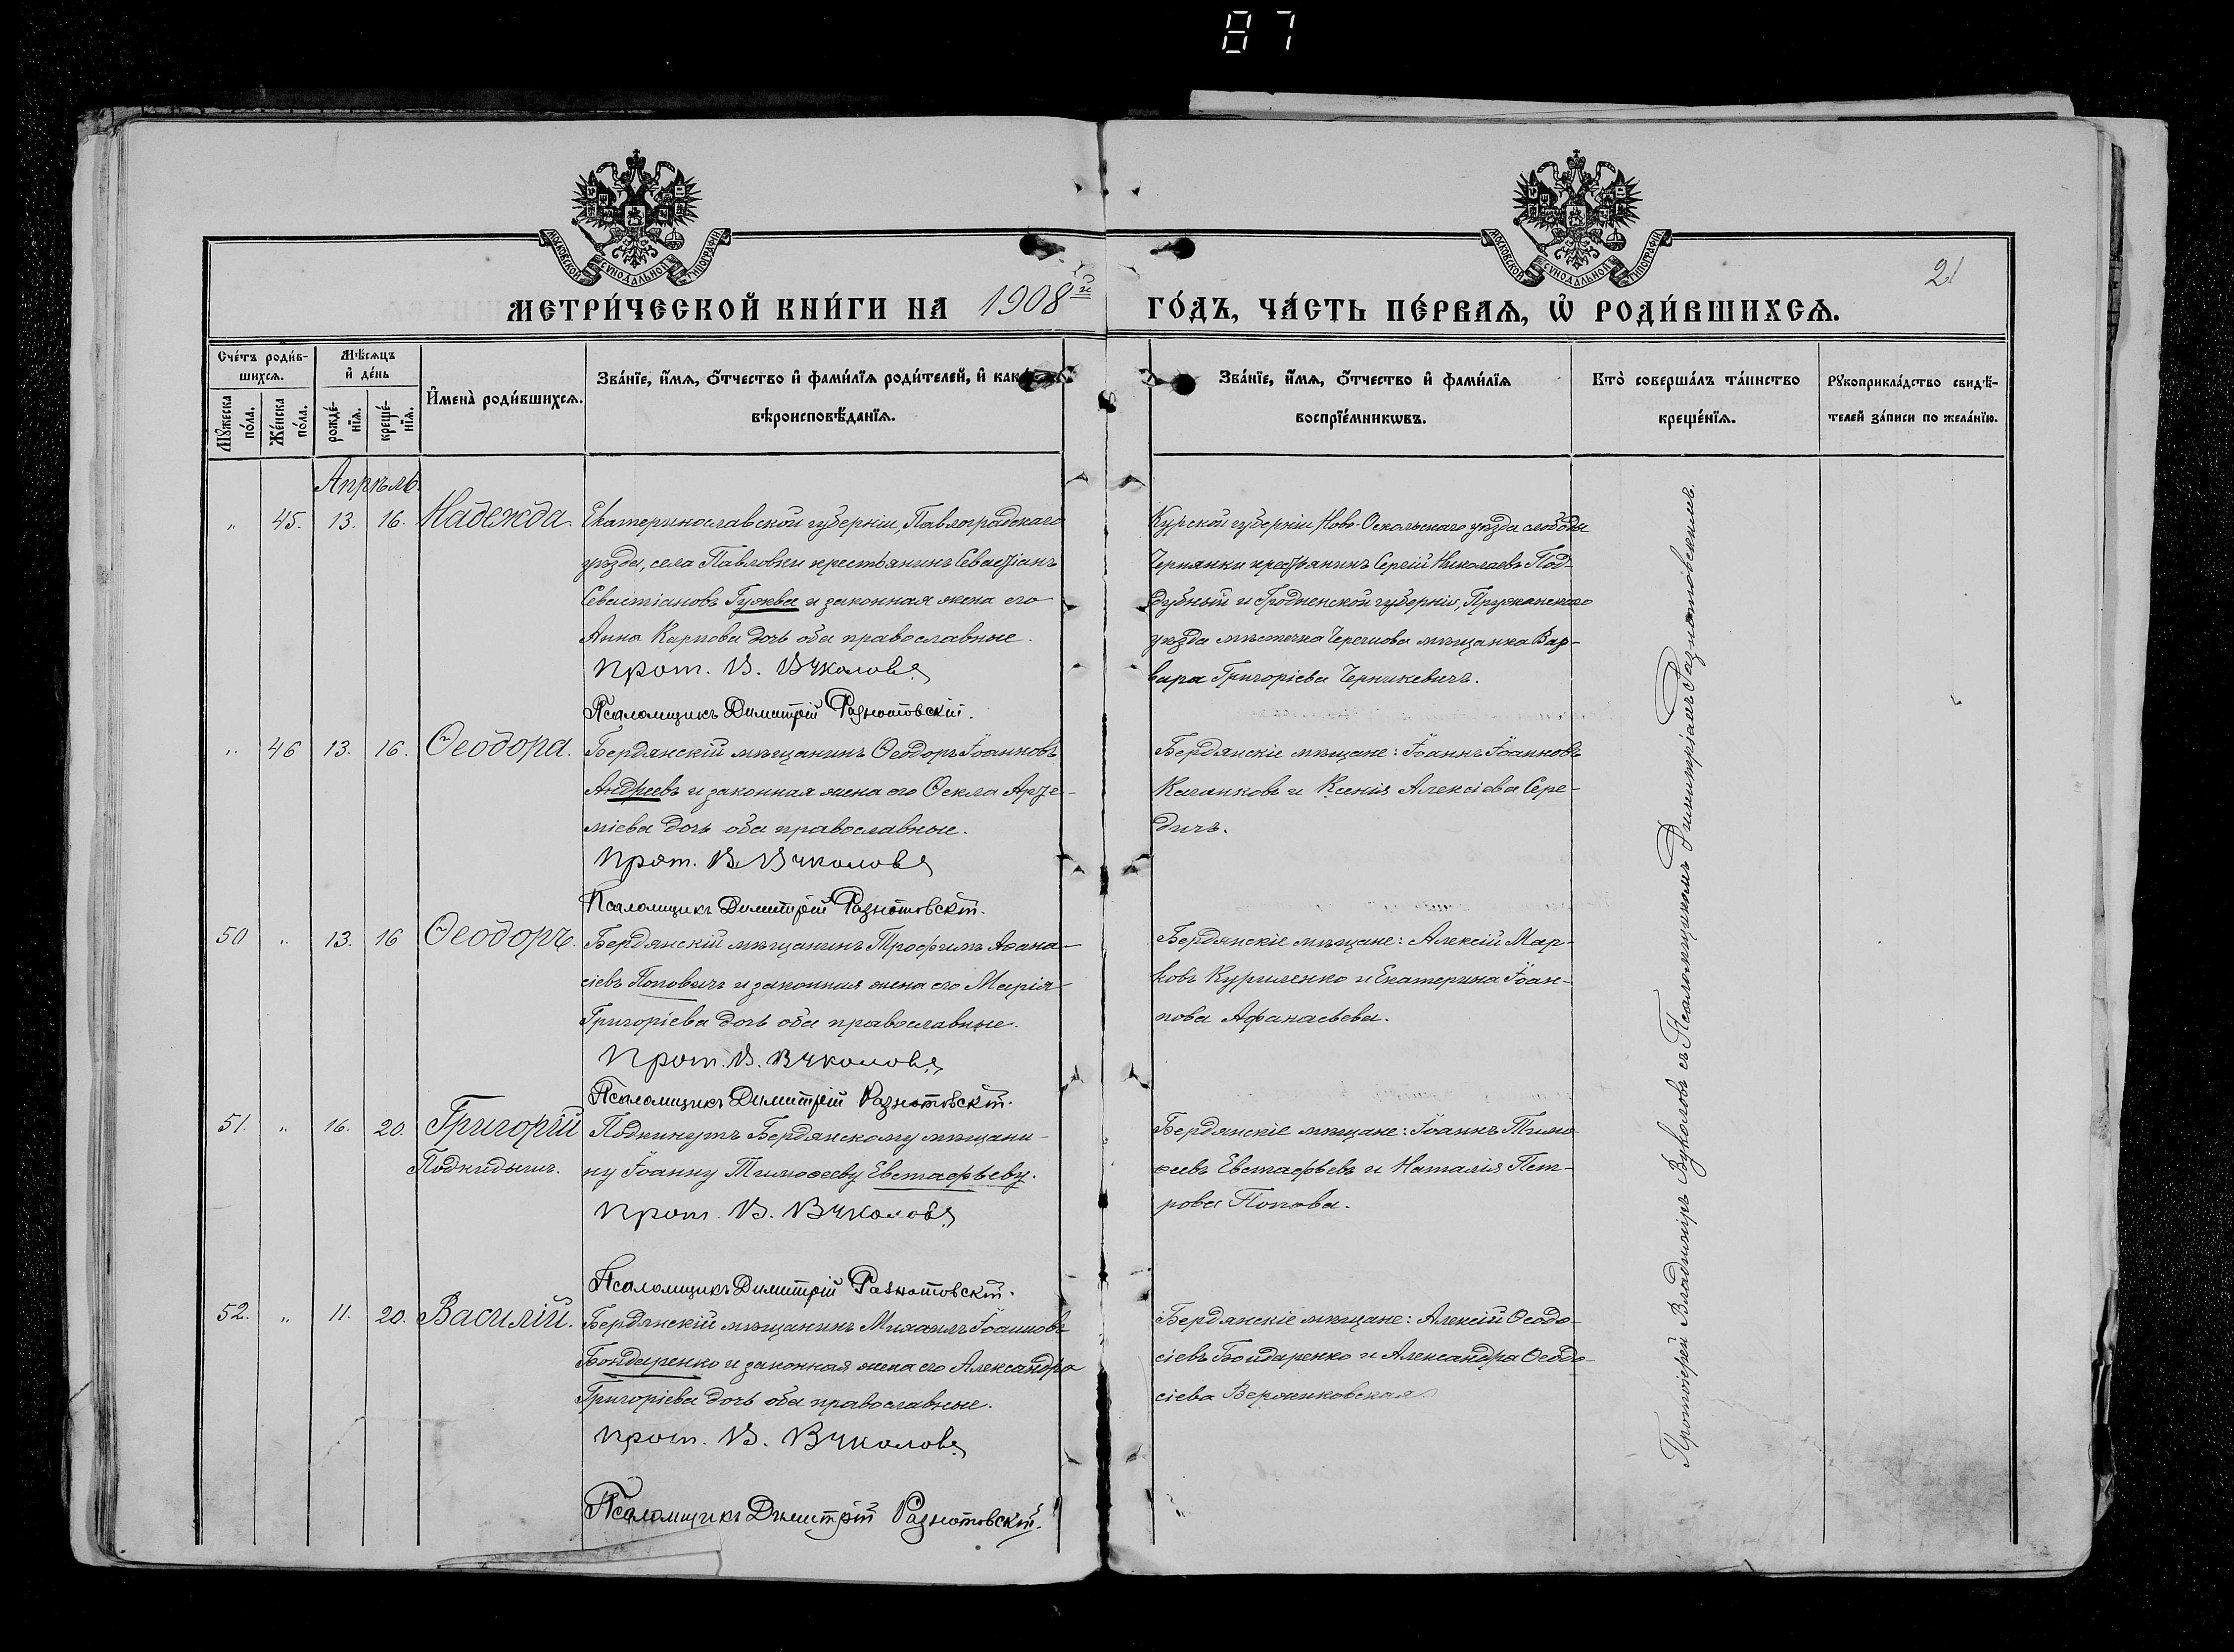 87
МОСКОВСКОЙ СУНОДАЛЬНОЙ ТИПОГРАФІИ
МОСКОВСКОЙ СУНОДАЛЬНОЙ ТИПОГРАФІИ
21
МЕТРИ́ЧЕСКОЙ КНИ́ГИ НА 1908й
ГО́ДЪ, ЧА́СТЬ ПЕ́РВАѦ, Ѡ҆ РОДИ́ВШИХСѦ.
Сче́тъ роди́в-
шихсѧ.
Мѣ́сѧцъ
и҆ де́нь
Мꙋжеска по́ла.
Же́нска по́ла.
рожде́-нїѧ.
креще́-нїѧ.
И҆мена̀ роди́вшихсѧ.
Зва́нїе, и҆́мѧ, ѻ҆́тчество и҆ фами́лїѧ роди́телей, и҆ как
вѣроисповѣ́данїѧ.
Зва́нїе, и҆́мѧ, ѻ҆́тчество и҆ фами́лїѧ
воспрїе́мникѡвъ.
Кто̀ соверша́лъ та́инство
креще́нїѧ.
Рꙋкоприкла́дство свидѣ́-
телей за́писи по жела́нїю.
Апрѣль.
„ 45. 13. 16. Надежда. Екатеринославской губерніи, Павлоградскаго
уѣзда, села Павловки крестьянинъ Севастіанъ
Севастіановъ Гужва и законная жена его
Анна Карпова дочь оба православные.
Прот. В. Вуколовъ
Псаломщикъ Димитрій Разнотовскій.
Курской губерніи Ново-Оскольскаго уѣзда слободы
Чернянки крестьянинъ Сергій Николаевъ Под-
дубный и Гродненской губерніи, Пружанскаго
уѣзда мѣстечка мѣщанка Вар-
вара Григоріева Черникевичъ.
„ 46 13. 16. Ѳеодора. Бердянскій мѣщанинъ Ѳеодоръ Іоанновъ
Андреевъ и законная жена его Ѳекла Арте-
міева дочь оба православные.
Прот. В. Вуколовъ
Псаломщикъ Димитрій Разнотовскій.
Бердянскіе мѣщане: Іоаннъ Іоанновъ
и Ксенія Алексіева Сере-
дичъ.
50 „ 13. 16 Ѳеодоръ. Бердянскій мѣщанинъ Трофимъ Аѳана-
сіевъ Поповичъ и законная жена его Марія
Григоріева дочь оба православные.
Прот. В. Вуколовъ
Псаломщикъ Димитрій Разнотовскій.
Бердянскіе мѣщане: Алексій Мар-
ковъ Куриленко и Екатерина Іоан-
нова Афанасьева.
51. „ 16. 20. Григорій Подкинутъ Бердянскому мѣщани-
Подкидышъ. ну Іоанну Тимоѳееву Евстафьеву.
Прот. В. Вуколовъ
Псаломщикъ Димитрій Разнотовскій.
Бердянскіе мѣщане: Іоаннъ Тимо-
ѳеевъ Евстафьевъ и Наталія Пет-
рова Попова.
52. „ 11. 20. Василій. Бердянскій мѣщанинъ Михаилъ Іоанновъ
Бондаренко и законная жена его Александра
Григоріева дочь оба православные.
Прот. В. Вуколовъ
Псаломщикъ Димитрій Разнотовскій.
Бердянскіе мѣщане: Алексій Ѳеодо-
сіевъ Бондаренко и Александра Ѳеодо-
сіева Вержиковская
Протоіерей Владиміръ Вуколовъ съ Псаломщикомъ Димитріемъ Разнотовскимъ.